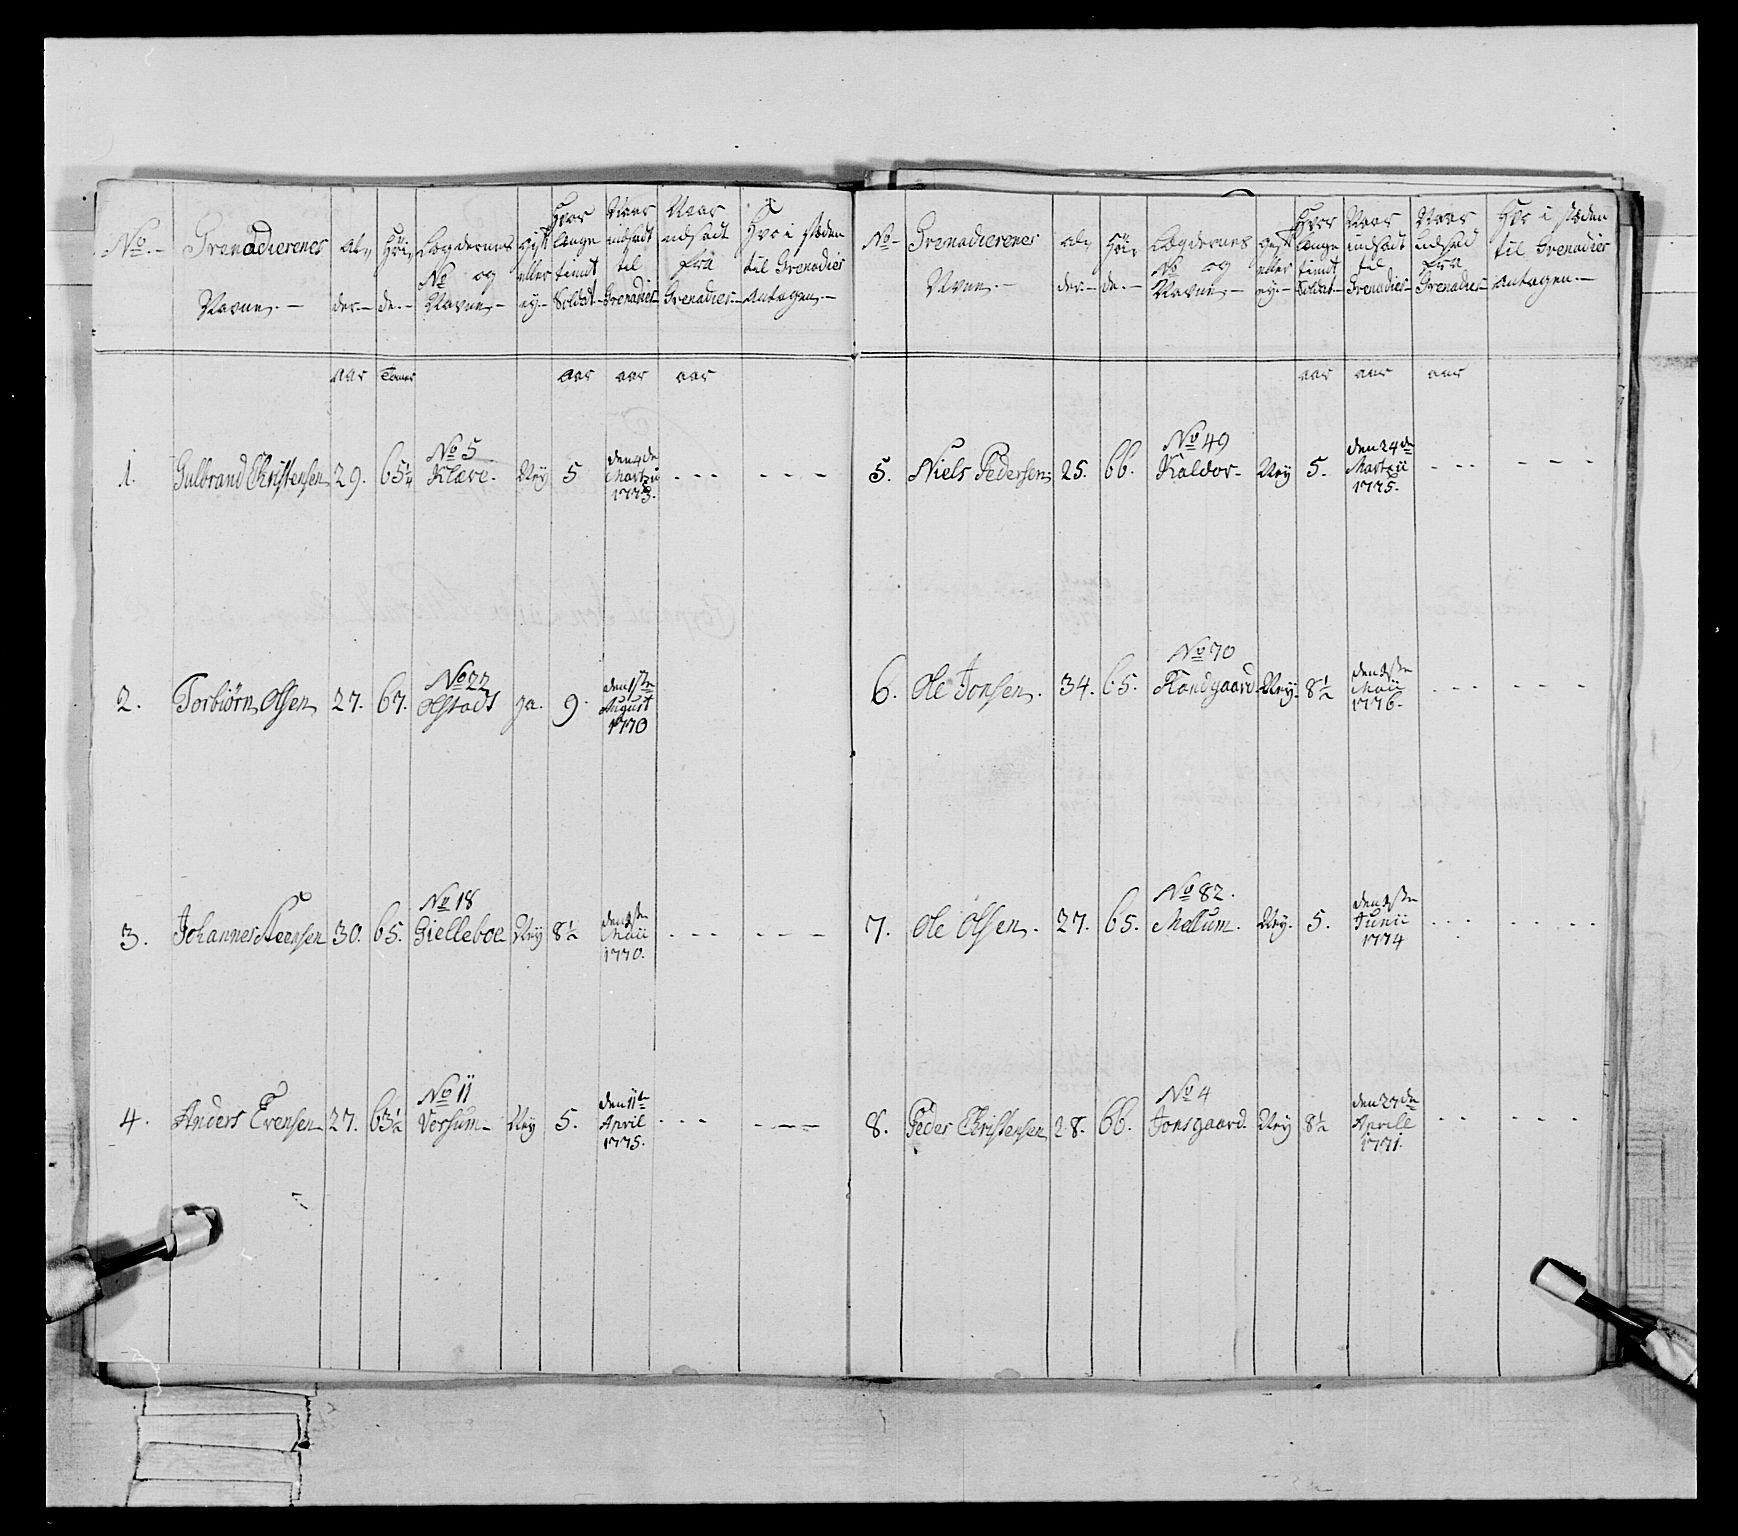 No.- Grenadierenes Navne.- Alder.- Høide.- Lægdernes No og Navne.- Gift eller ey.- Hvor længe tient Soldat.- Naar indsadt til Grenadier.- Naar udsadt fra Grenadier.- Hvo i stæden til Grenadier Antagen.-
aar Tomer aar aar aar
1. Gulbrand Christensen 29. 65¼ No 5 Klæve. Ney 5 den 4de Martzii 1773. - - - - - -
2. Torbiörn Olsen 27. 67. No 22 Olstad ja. 9. den 1ste August 1770
3. Johannes Steensen 30. 65. No 18 Gielleboe Ney 8½ den 1ste Maii 1770. - - - - - -
4. Anders Evensen 27. 63½ No 11 Versum- Ney 5. den 11te April 1775. - - - - - -
No- Grenadierenes Nvne.- Alder.- Høide.- Lægdernes No og Navne.- Gift eller ey.- Hvor længe tient Soldat.- Naar indsadt til Grenadier- Naar udsad fra Grenadier- Hvo i stæden til Grenadier Antagen.-
aar aar aar
5. Niels Pedersen 25. 66. No 49 Kaldor- Ney 5. den 24de Martzii 1775. - - - - - -
6. Ole Jonsen. 34. 65. No 70 Kandgaard- Ney. 8½ den 1ste Maii 1776. - - - - - -
7. Ole Olsen. 27. 65. No 82. Mellum. Ney. 5. den 1ste Junii 1774 - - - - - -
8. Peder Christensen 28. 66. No 4 Jonsgaard. Ney 8½ den 27de Aprill 1771. - - - - -